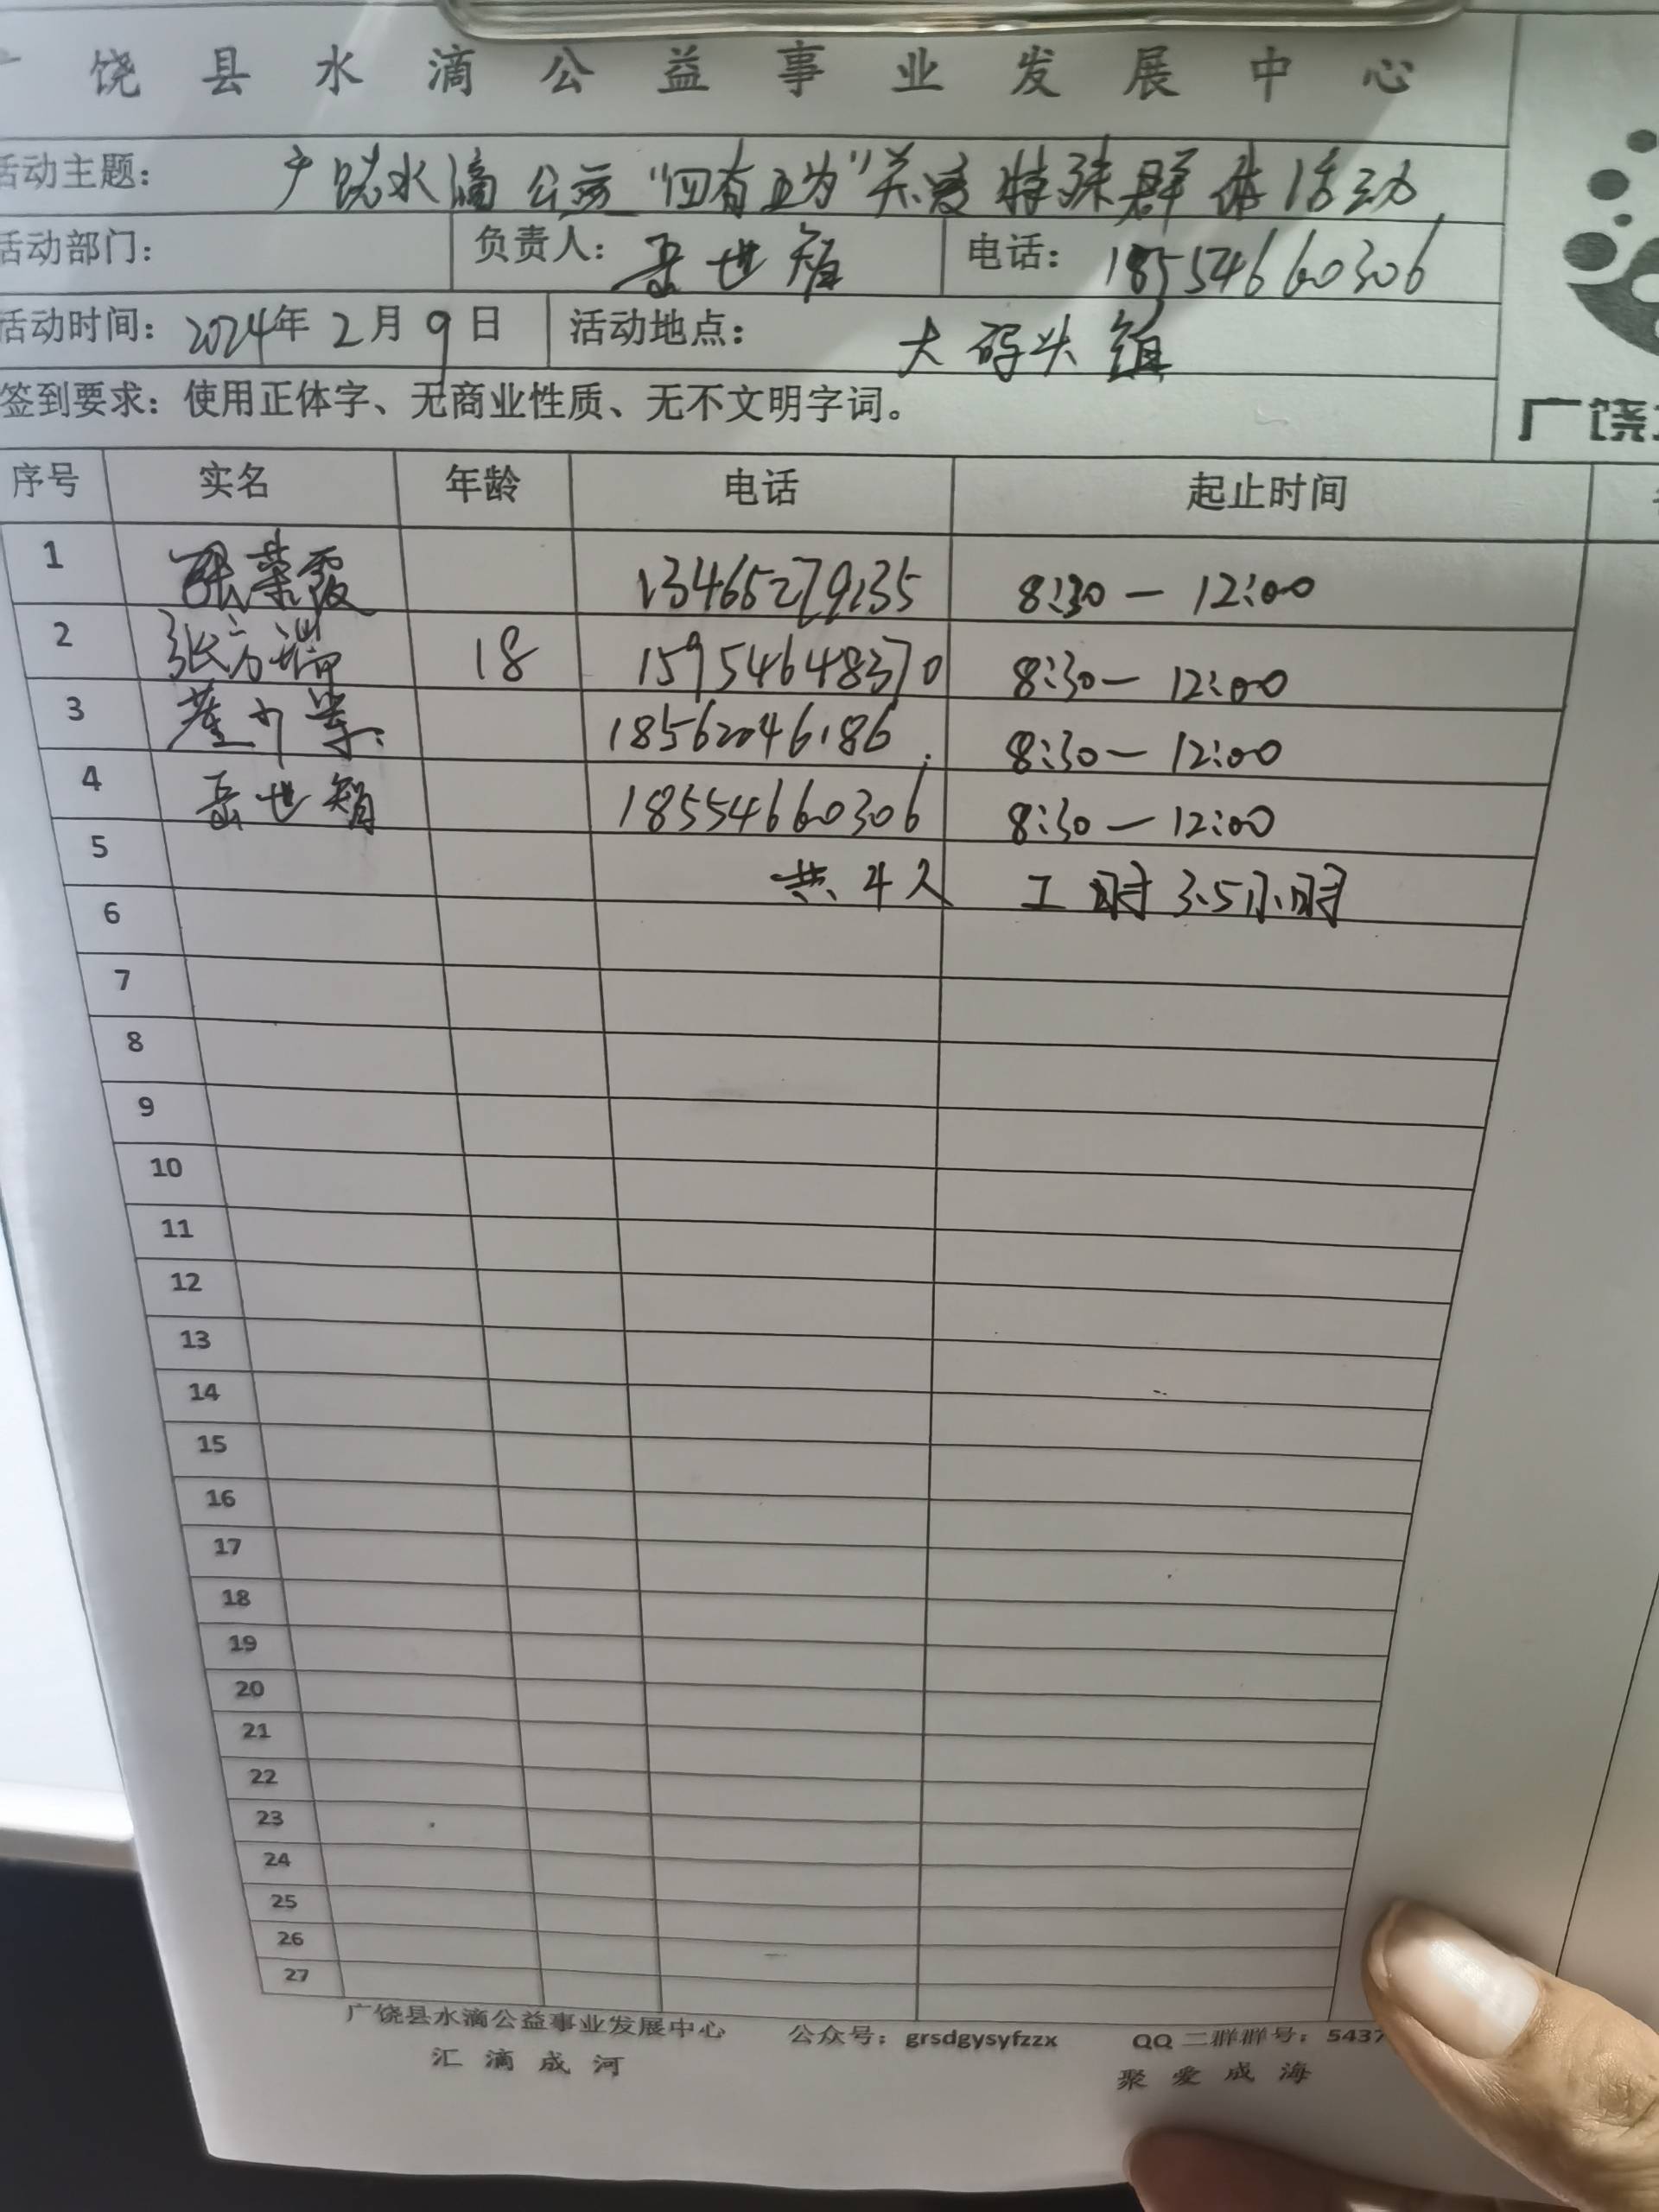 饶县水滴公益事业发展中心
活动主题： 广饶水滴公益“四有五为”关爱特殊群体活动
活动部门： 负责人：岳世 电话：18554660306
活动时间：2024年2月9日 活动地点： 大码头镇
签到要求：使用正体字、无商业性质、无不文明字词。
广饶
序号 实名 年龄 电话 起止时间
1 张荣霞 13465279135 8:30—12:00
2 张方 18 15954648370 8:30—12:00
3 崔 18562046186 8:30—12:00
4 岳世 18554660306 8:30—12:00
5 共4人 工时3.5小时
6
7
8
9
10
11
12
13
14
15
16
17
18
19
20
21
22
23
24
25
26
27
广饶县水滴公益事业发展中心 公众号：grsdgysyfzzx QQ二群群号：5437
汇滴成河 聚爱成海